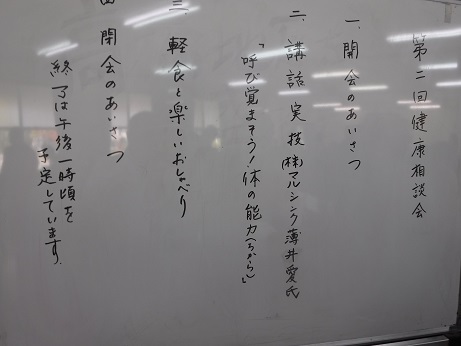 第二回健康相談会
一、開会のあいさつ
二、講話実技(株)マルシンク薄井愛氏
「呼び覚まそう!体の能力(ちから)」
三、軽食と楽しいおしゃべり
四 閉会のあいさつ
終了は午後一時頃を
予定しています.